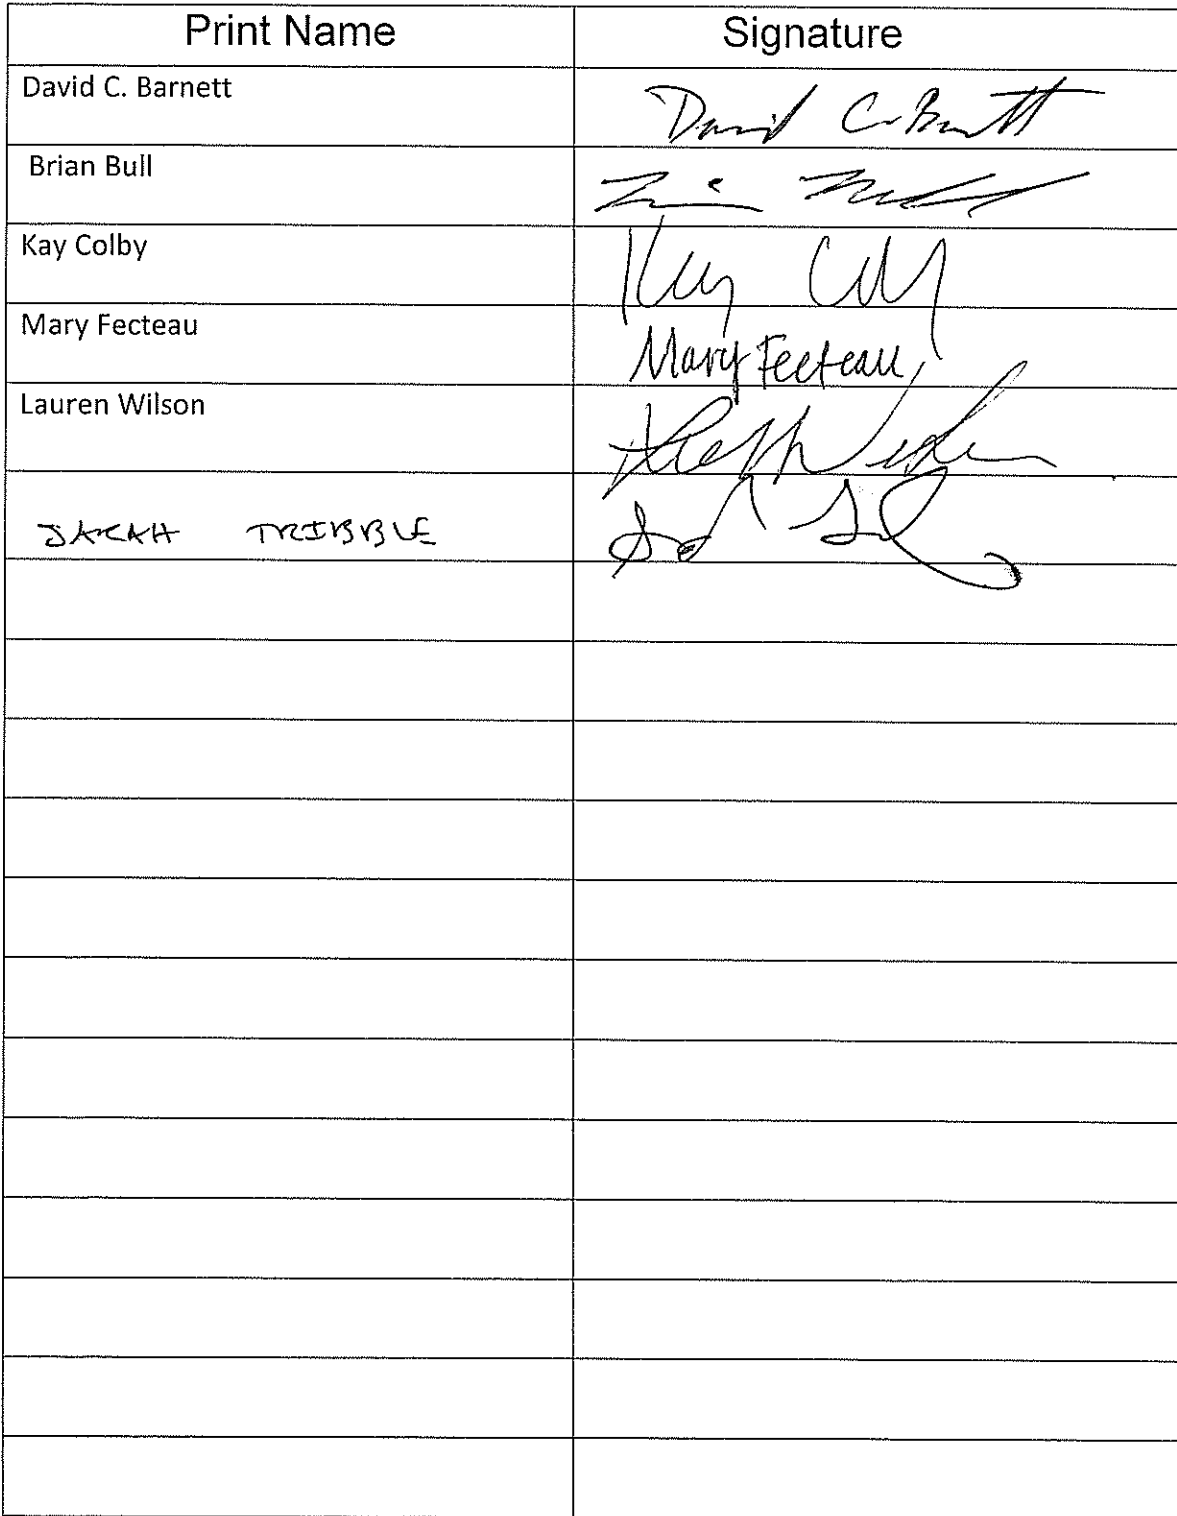 Print Name Signature
David C. Barnett David C. Barnett
Brian Bull
Kay Colby Kay Colby
Mary Fecteau Mary Fecteau
Lauren Wilson
SARAH TRIBBLE